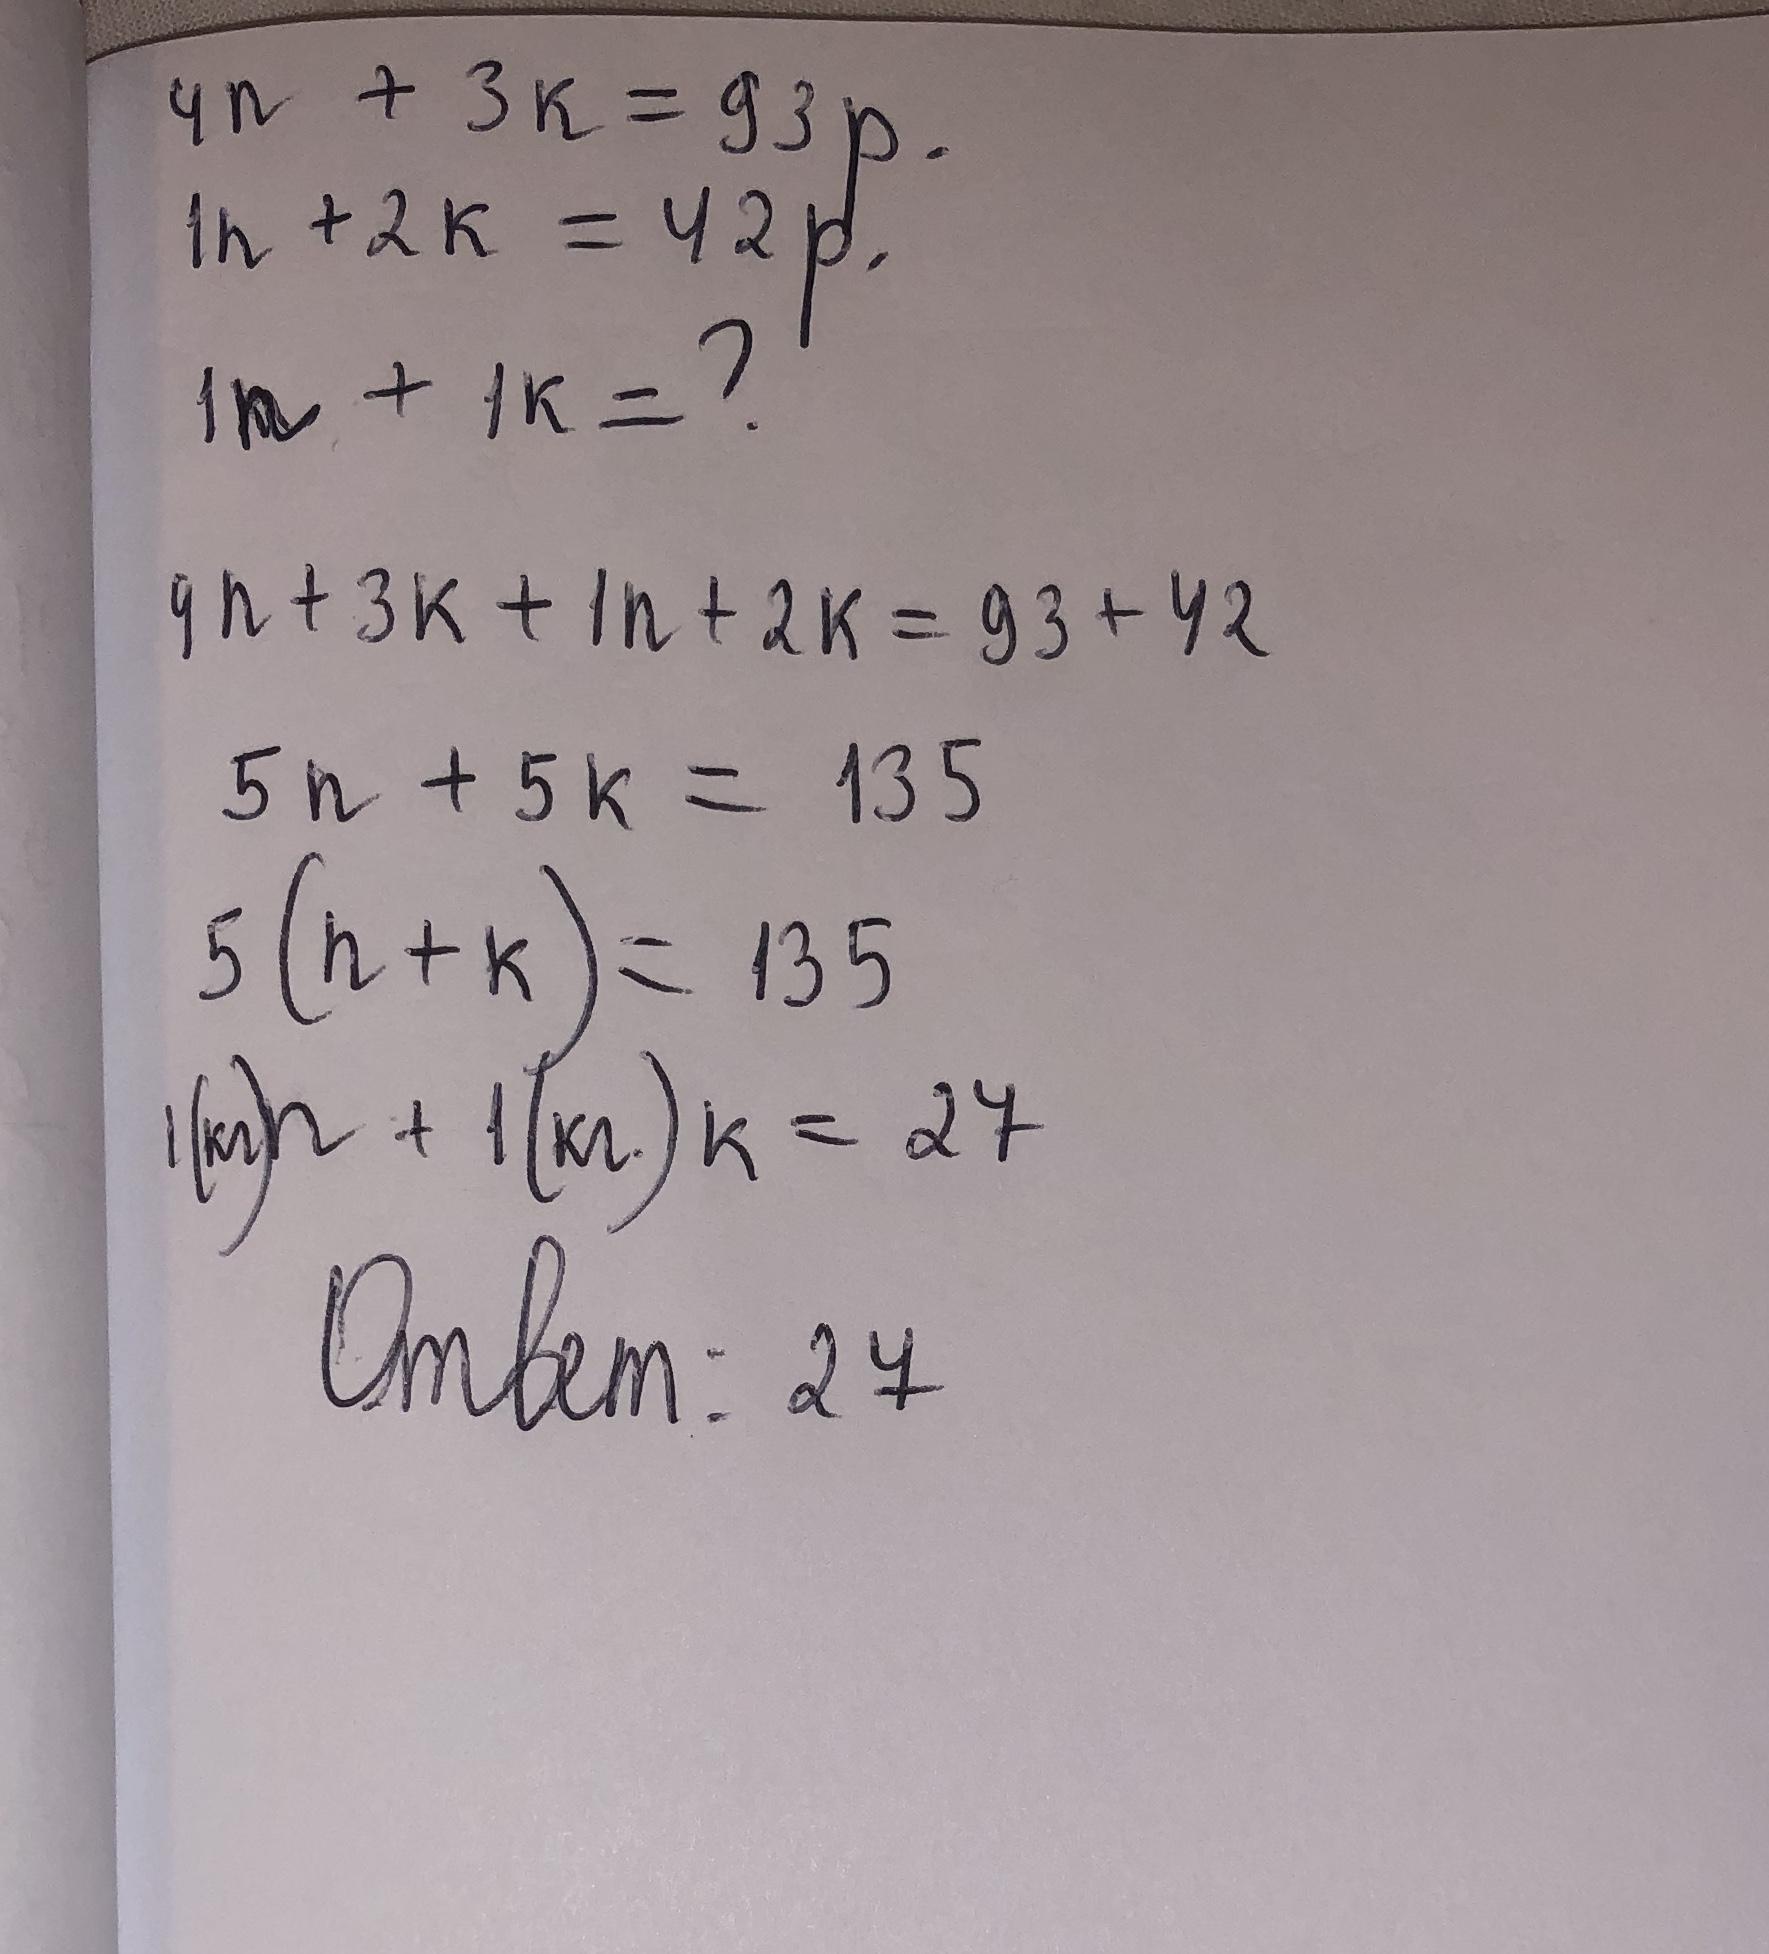 4п + 3к = 93р.
1п + 2к = 42р.
1п + 1к = ?
4п + 3к + 1п + 2к = 93 + 42
5п + 5к = 135
5(п + к) = 135
1(кг)п + 1(кг.)к = 27
Ответ: 27